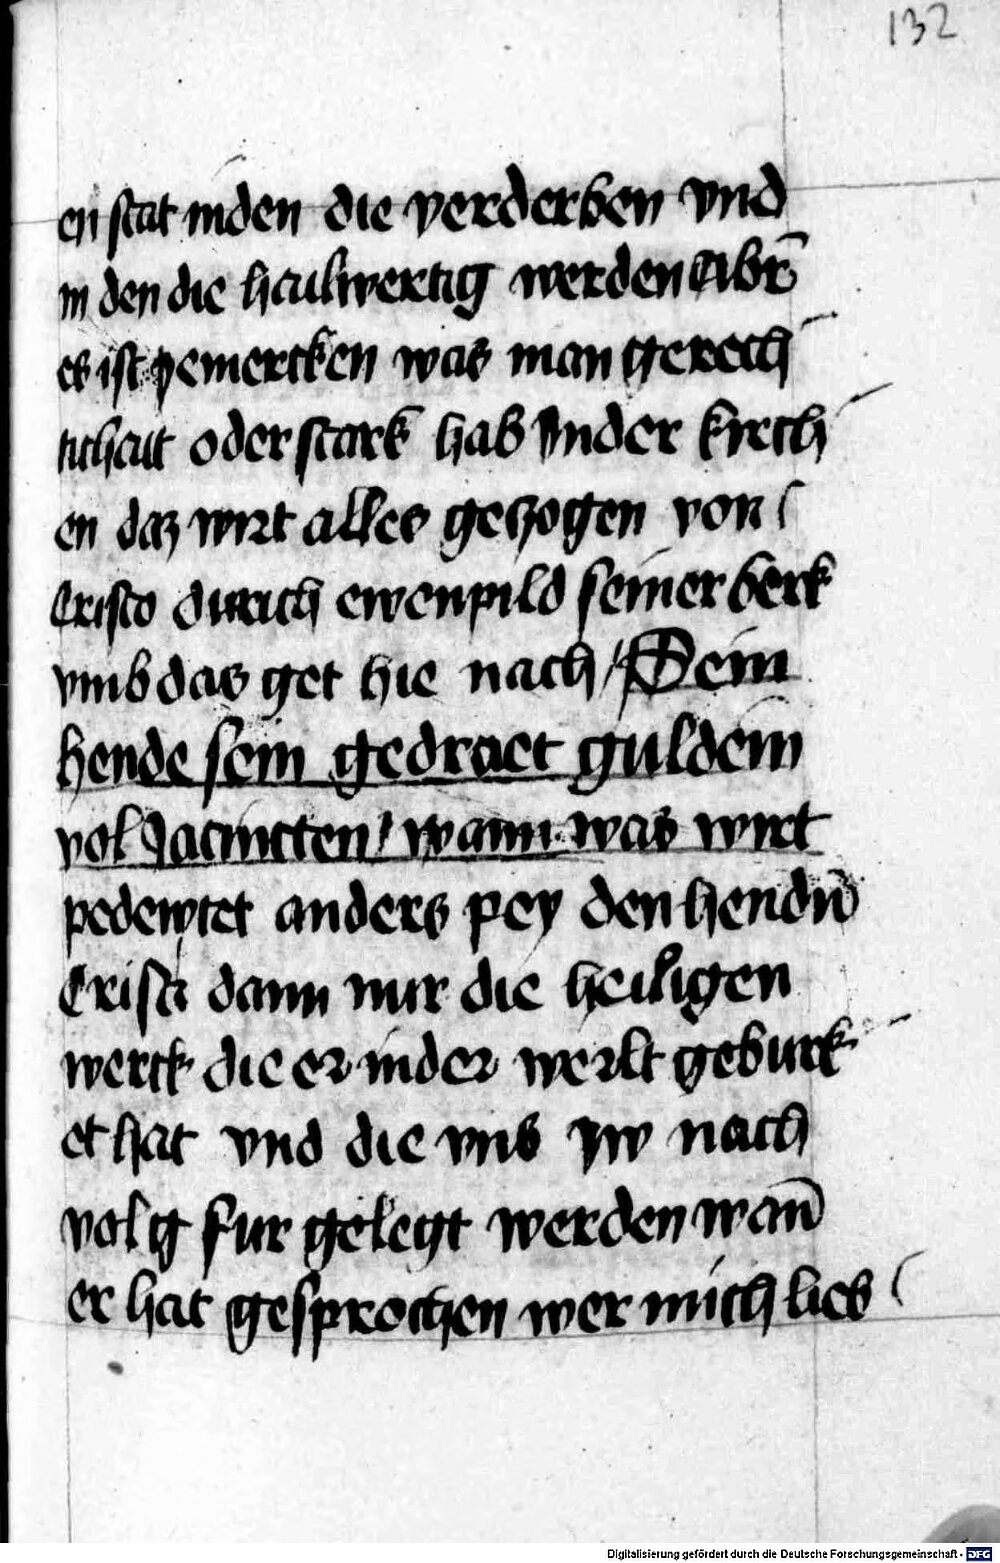 132
en stat in den die verderben vnd
in den die hailwertig werden Abr̄
es ist ze mercken was man gerech
tichait oder stark hab in der kirch
en daz wirt alles gezogen von
Cristo durich ewenpild seiner berk
vmb das get hie nach / Sein
hende sein gedraet guldein
vol Jacincten / wann was wirt
pedewtet anders pey den hendn̄
Cristi dann nur die heiligen
werck die er in der werlt geburk
et hat vnd die vns zw nach
volg fur gelegt werden wan̄
er hat gesprochen wer mich lieb
Digitalisierung gefördert durch die Deutsche Forschungsgemeinschaft - DFG